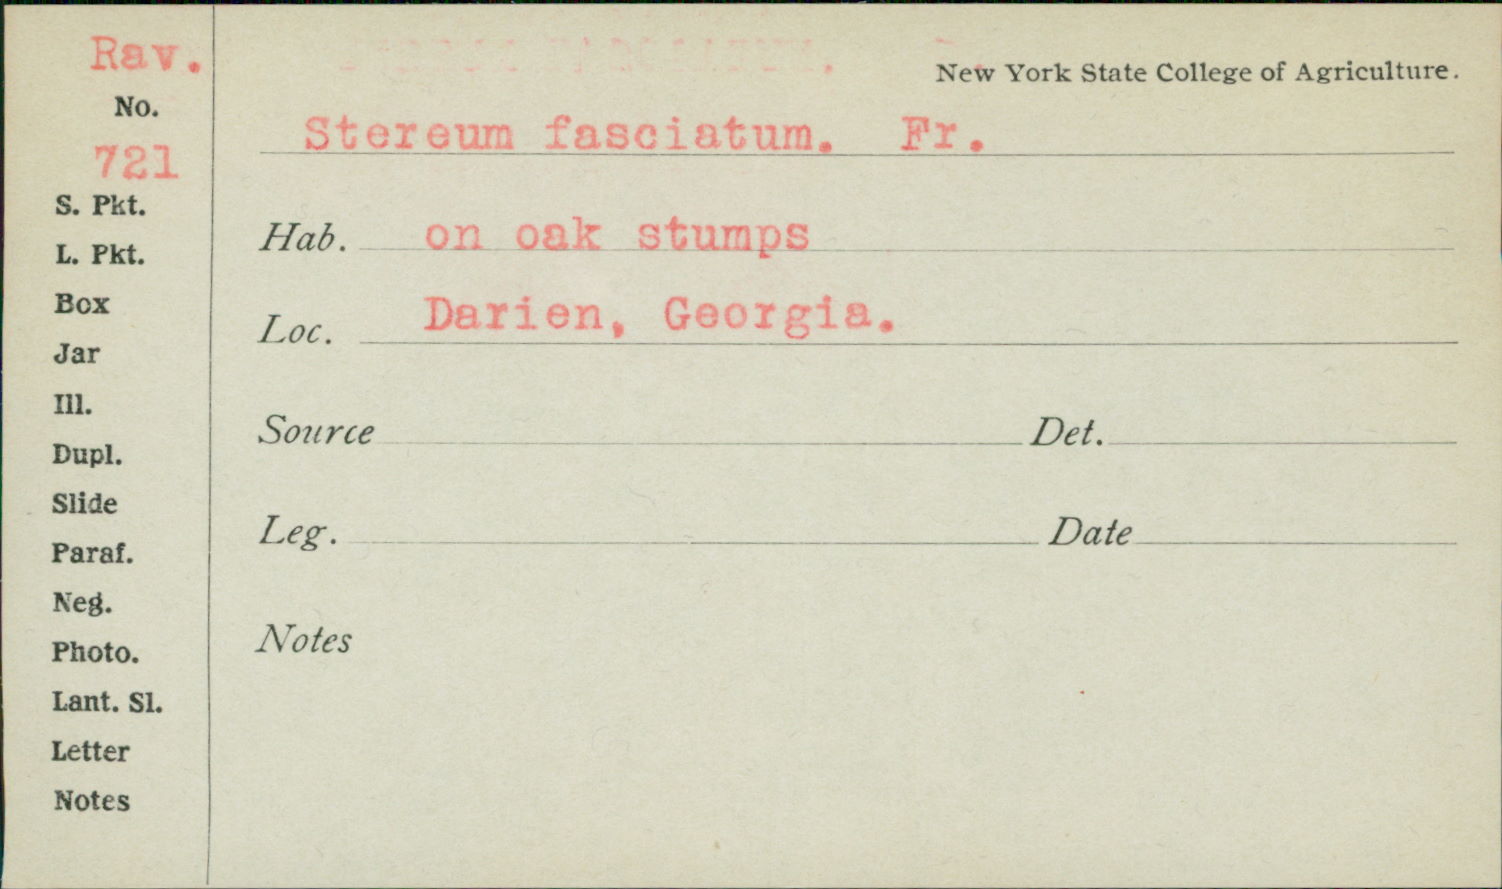 Rav.
No.
721
S. Pkt.
L. Pkt.
Box
Jar
Ill.
Dupl.
Slide
Paraf.
Neg.
Photo.
Lant. Sl.
Letter
Notes
New York State College of Agriculture.
Stereum fasciatum. Fr.
Hab. on oak stumps
Loc. Darien, Georgia.
Source Det.
Leg. Date
Notes